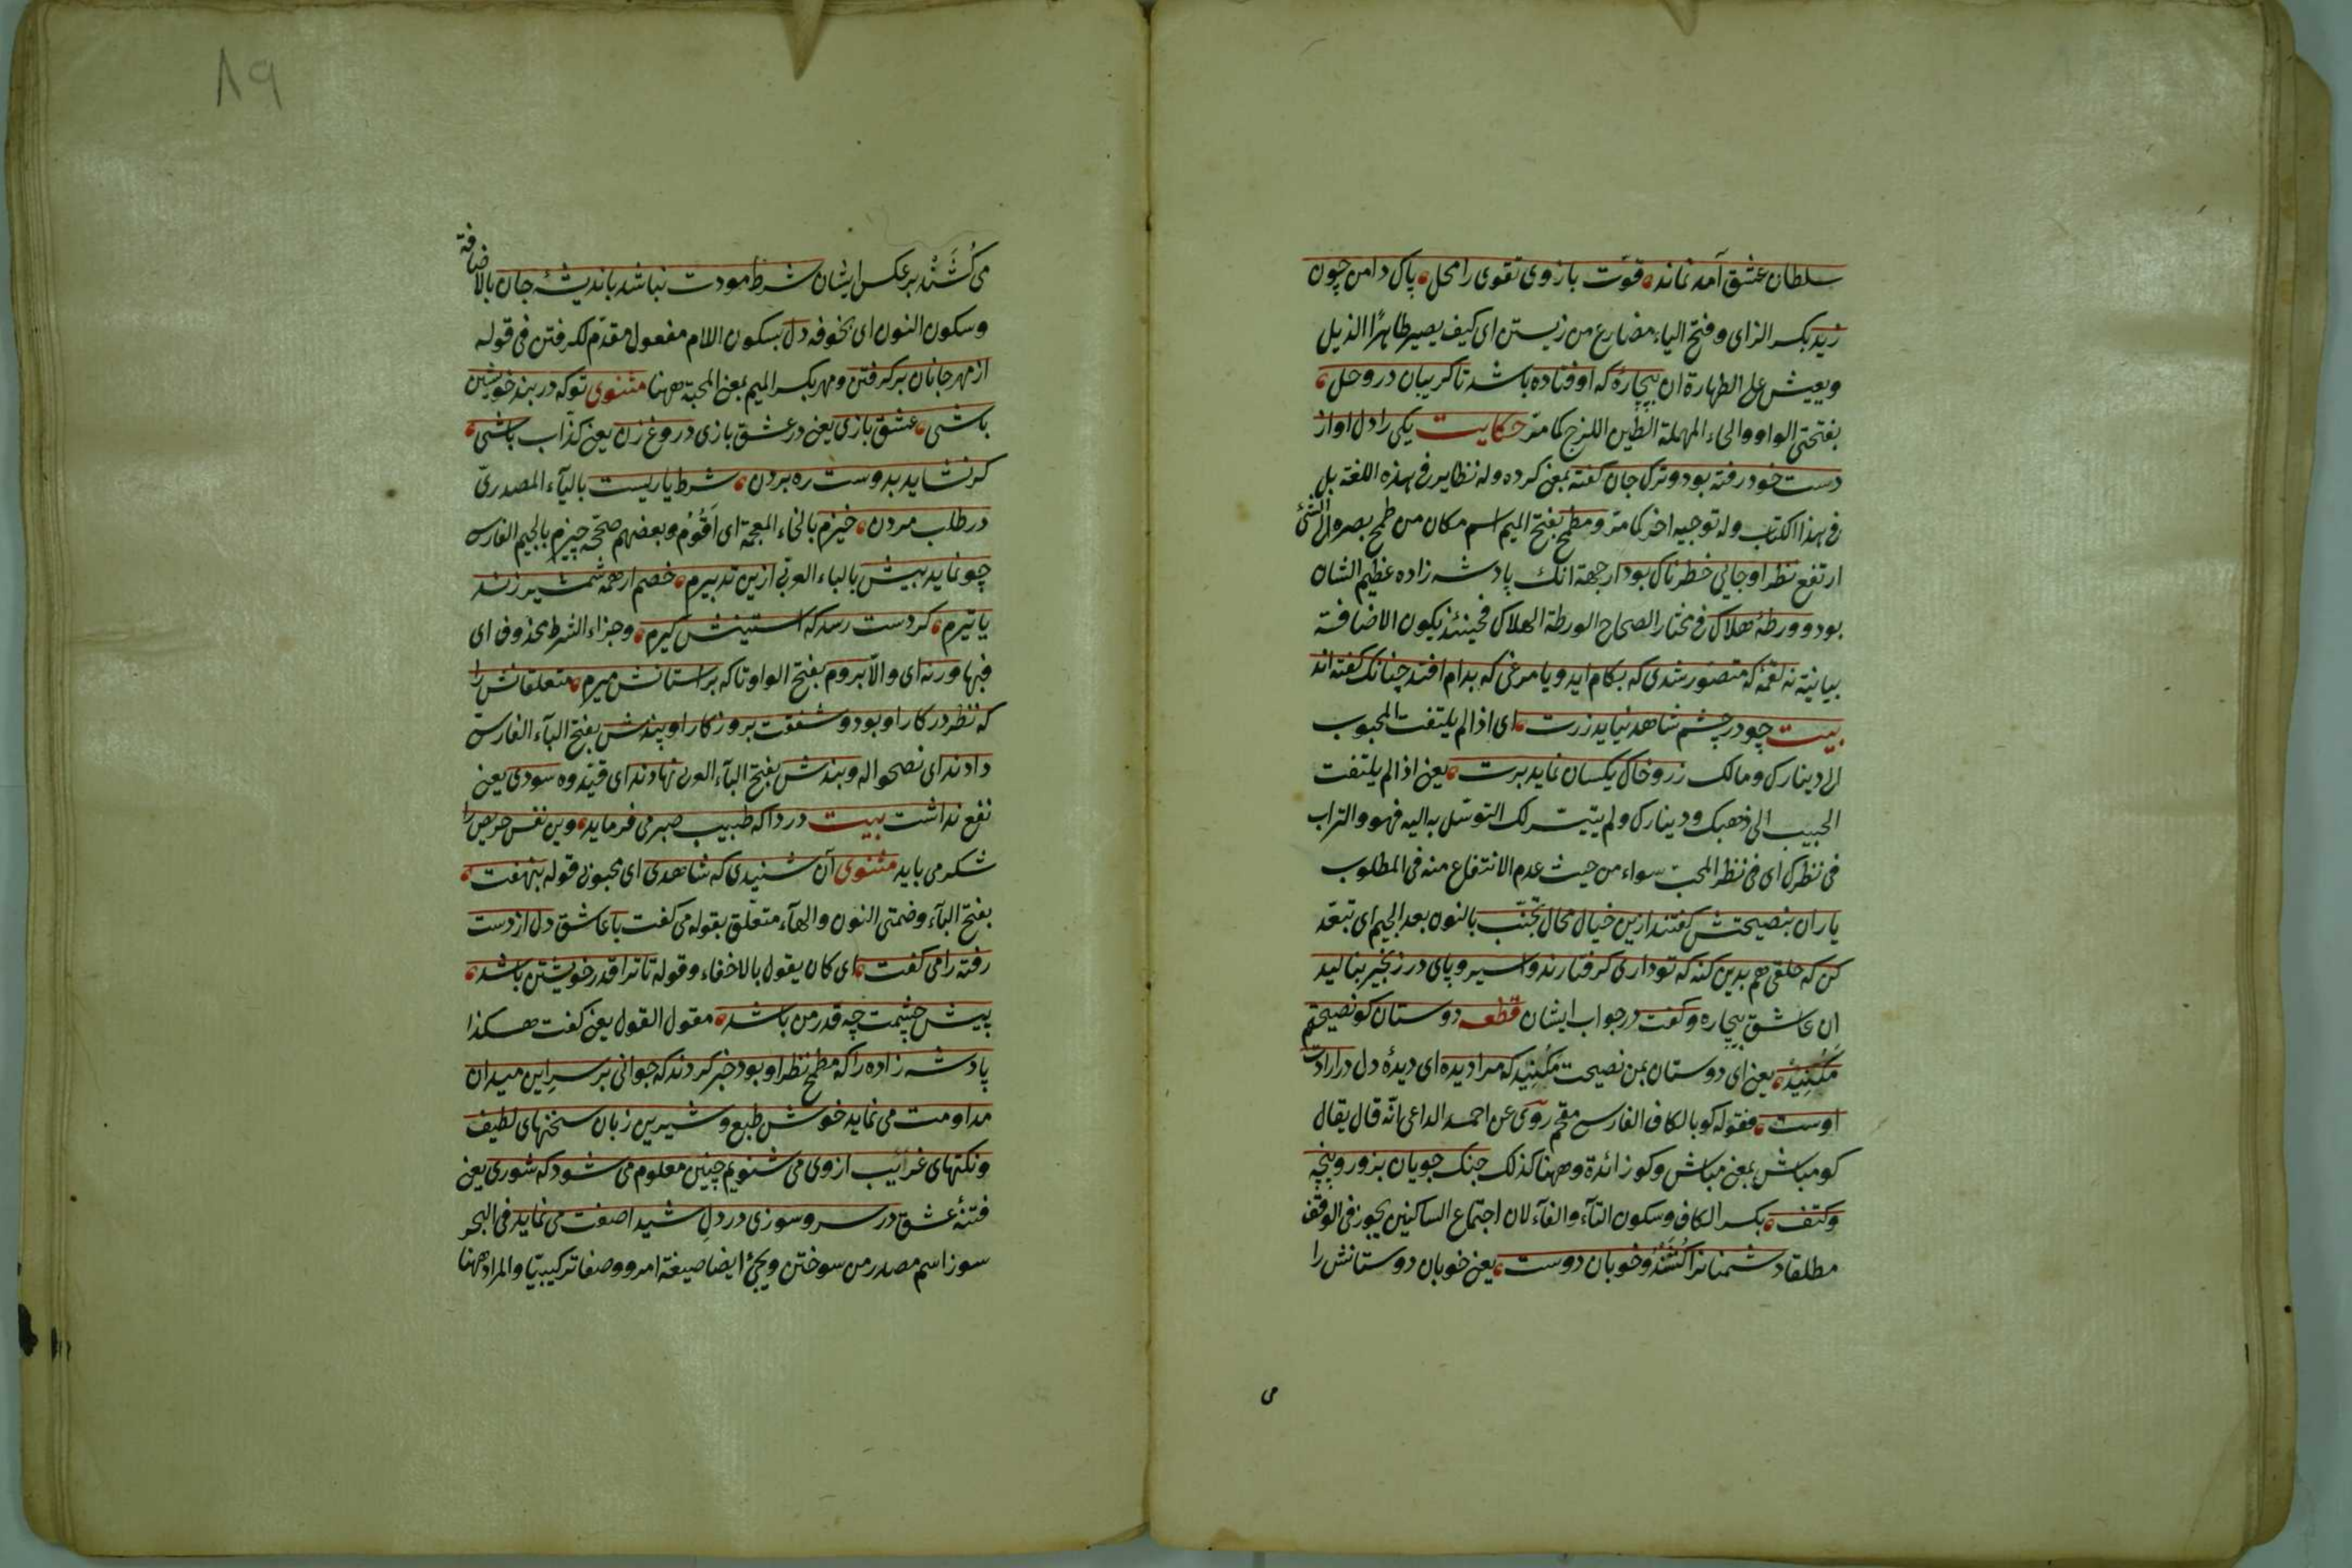 سلطان عشق آمد نماند قوّت بازوی تقوی را محل پاک دامن چون
زید بکسر الزای وفتح الیاء مضارع من زیستن ای کیف یصیر طاهرًا الذیل
ویعیش علی الطهارة ان بیچارهٔ که اوفتاده باشد تا کریبان در وحل
بفتحتی الواو والحاء المهملة الطین اللزج کما مرّ حکایت یکی را دل او از
دست خود رفته بود وترک جان کفته بمعنی کرده وله نظایر فی هذه اللغة بل
فی هذا الکتاب وله توجیه اخر کما مرّ ومطمح بفتح المیم اسم مکان من طمح بصره الی الشئ
ارتفع نظر او جایی خطرناک بود از جهة انک پادشه زاده عظیم الشان
بود وورطهٔ هلاک فی مختار الصحاح الورطة الهلاک فحینئذ یکون الاضافة
بیانیة نه لقمهٔ که متصوّر شدی که بکام اید ویا مرغی که بدام افتد چنانک کفته اند
بیت چو در چشم شاهد نیاید زرت ای اذا لم یلتفت المحبوب
الی دینارک ومالک زر وخاک یکسان نماید برت یعنی اذا لم یلتفت
الحبیب الی ذهبک ودینارک ولم یتیسّر لک التوسّل به الیه فهو والتراب
فی نظرک ای فی نظر المحب سواء من حیث عدم الانتفاع منه فی المطلوب
یاران بنصیحتش کفتند ازین خیال محال تجنّب بالنون بعد الجیم ای تبعّد
کن که خلقی هم بدین کنه که تو داری کرفتارند واسیر وپای در زنجیر بنالید
ان عاشق بیچاره وکفت در جواب ایشان قطعه دوستان کو نصیحتم
مکنید یعنی ای دوستان بمن نصیحت مکنید که مرا دیده ای دیدهٔ دل در ارادت
اوست فقوله کو بالکاف الفارسی مقحم روی عن احمد الداعی انّه قال یقال
کو مباش بمعنی مباش وکو زائدة وههنا کذلک جنک جویان بزور وپنجه
وکتف بکسر الکاف وسکون التآء والفآء لان اجتماع الساکنین یجوز فی الوقف
مطلقا دشمنانرا کُشَنْد وخوبان دوست یعنی خوبان دوستانش را
می
٨٩
می کُشَنْد بر عکس ایشان شرط مودت نباشد باندیشهٔ جان بالاضافة
وسکون النون ای بخوفه دل بسکون اللام مفعول مقدّم لکرفتن فی قوله
از مهر جانان برکرفتن ومهر بکسر المیم بمعنی المحبة ههنا مثنوی تو که در بند خویشتن
باشی عشق بازی یعنی در عشق بازی دروغ زن یعنی کذّاب باشی
کر نشاید بدوست ره بردن شرط یاریست بالیآء المصدریّ
در طلب مردن خیزم بالخاء المعجمة ای اَقُومُ وبعضهم صحّحه چیزم بالجیم الفارسی
چو نماید بیش بالباء العربی ازین تدبیرم خصم ار همه شمشیر زند
یا تیرم کر دست رسد که استینش کیرم وجزاء الشرط محذوف ای
فبها ورنه ای والّا بروم بفتح الواو تا که بر استانش میرم متعلقانش را
که نظر در کار او بود وشفقت بروزکار او پندش بفتح البآء الفارسیّ
دادند ای نصحوا له وبندش بفتح البآء العربی نهادند ای قیّدوه سودی یعنی
نفع نداشت بیت دردا که طبیب صبر می فرماید وین نفس حریص را
شکر می باید مثنوی آن شنیدی که شاهدی ای محبوبی قوله بنهفت
بفتح البآء وضمتی النون والهآء متعلّق بقوله می کفت با عاشق دل از دست
رفته را می کفت ای کان یقول بالاخفاء وقوله تا ترا قدر خویشتن باشد
پیش چشمت چه قدر من باشد مقول القول یعنی کفت هکذا
پادشه زاده را که مطمح نظر او بود خبر کردند که جوانی بر سرِ این میدان
مداومت می نماید خوش طبع وشیرین زبان سخنهای لطیف
ونکتهای غرائیب ازوی می شنویم چنین معلوم می شود که شوری یعنی
فتنهٔ عشق در سر وسوزی در دلِ شیدا صفت می نماید فی البحر
سوز اسم مصدر من سوختن ویجئ ایضا صیغة امر ووصفا ترکیبیّا والمراد ههنا